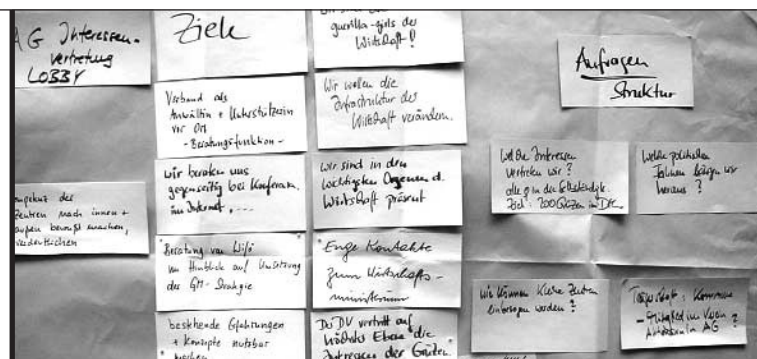 AG Interessen-
vertretung
LOBBY
Zentren nach innen +
außen bewußt machen,
verdeutlichen
Ziele
Verband als
Anwältin + Unterstützerin
vor Ort
- Beratungsfunktion -
wir beraten uns
gegenseitig bei Konferenz.
im Internet, ....
Beratung von Wifö
im Hinblick auf Umsetzung
der GM-Strategie
bestehende Erfahrungen
+ Konzepte nutzbar
machen
guerilla-girls der
Wirtschaft!
Wir wollen die
Infrastruktur der
Wirtschaft verändern.
Wir sind in den
wichtigsten Organen d.
Wirtschaft präsent
Enge Kontakte
zum Wirtschafts-
ministerium
Der DV vertritt auf
höchster Ebene die
Interessen der
Anfragen
Struktur
Welche Interessen
vertreten wir?
alle in die
Ziel: 200 in
Welche politischen
wir
heraus?
wie können kleine Zentren
einbezogen werden?
Trägerschaft: Kommune
- Mitglied im Verein ?
in AG